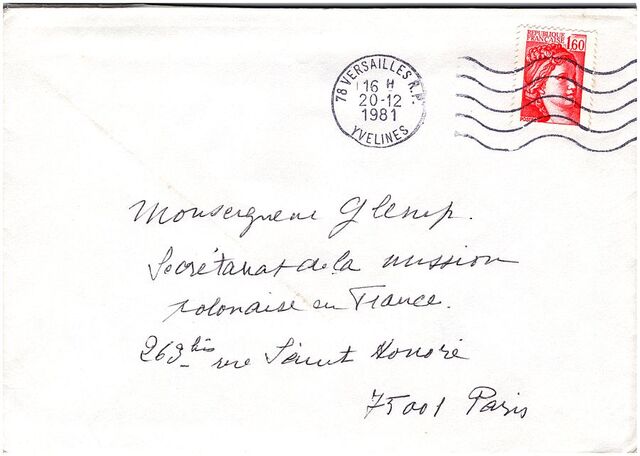 REPUBLIQUE
FRANCAISE 1,60
78 VERSAILLES R.P.
16 H
20-12
1981
YVELINES
Monseigneur Glemp.
Secrétariat de la mission
polonaise en France.
263 bis rue Saint Honoré
75001 Paris